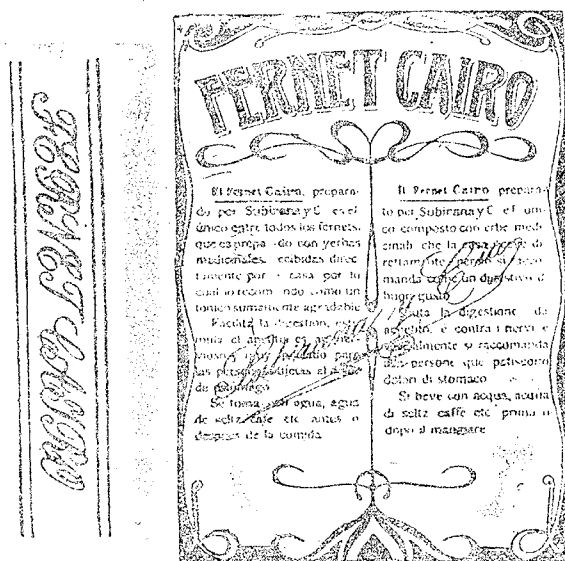 FERNET CAIRO
FERNET CAIRO
El Fernet Cairo, prepara-
do por Subirana y C es el
único entre todos los fernets,
que es prepa do con yerbas
medicinales recibidas direc
tamente por casa por lo
cual lo recom ndo como un
tonico sumamente agradable
Facilita la digestion,
el apetito es
para
las personas
de estómago
Se toma con agua, agua
de seltz cafe etc antes o
despues de la comida
Il Fernet Cairo prepara-
to por Subirana y C e l' uni-
co composto con erbe medi
cinali che la casa riceve di
rettamente perciò si racco
manda come un digestivo di
buon gusto
la digestione da
appetito, e contra i nervi e
si raccomanda
persone que patiscono
dolori di stomaco
Si beve con acqua, acqua
di seltz caffe etc prima o
dopo il mangiare